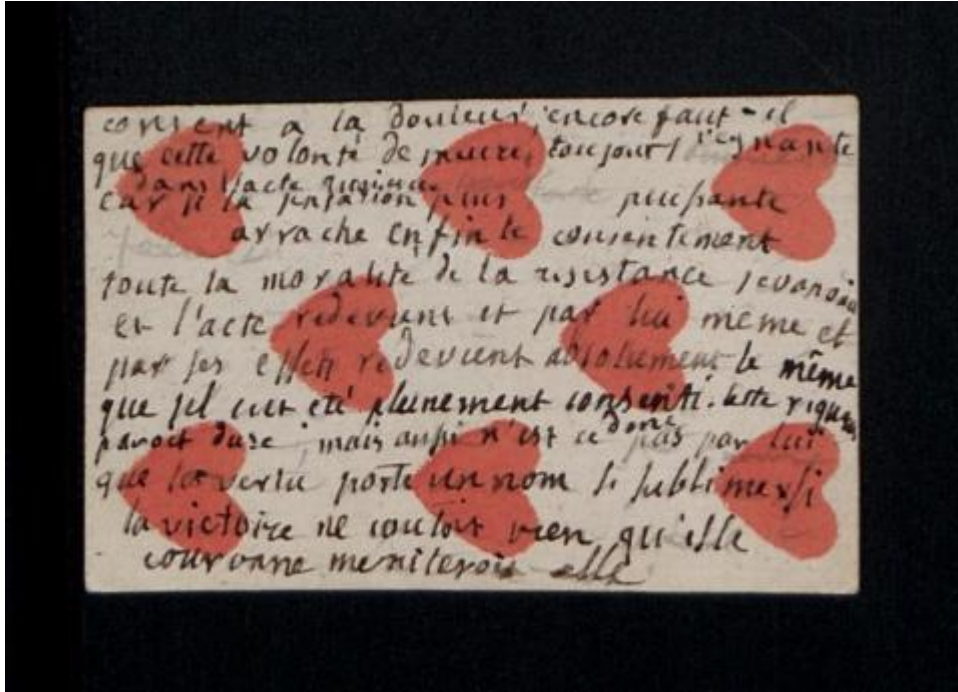 consent a la douleur, encore faut-il
que cette volonté de mourir, toujours regnante
dans l'acte
car si la sensation plus puissante
arrache enfin le consentement
toute la moralité de la resistance s'evanouit
et l'acte redevient et par lui meme et
par ses effets redevient absolument le même
que s'il eut été pleinement consenti. cette rigueur
paroit dure, mais aussi n'est ce donc pas par lui
que la vertu porte un nom si sublime si
la victoire ne coutoit rien qu'elle
couronne meriteroit elle